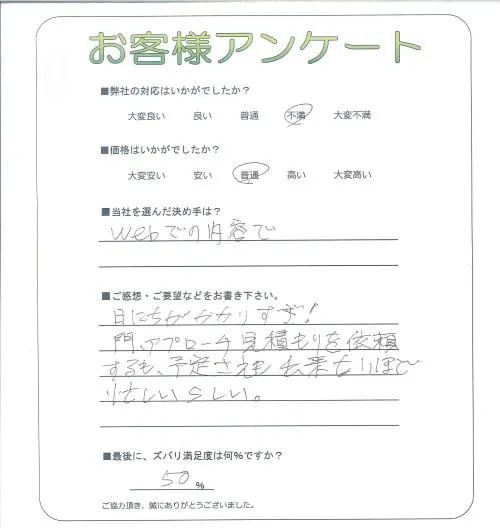 お客様アンケート
■弊社の対応はいかがでしたか？
大変良い 良い 普通 不満 大変不満
■価格はいかがでしたか？
大変安い 安い 普通 高い 大変高い
■当社を選んだ決め手は？
Webでの内容で
■ご感想・ご要望などをお書き下さい。
日にちがかかりすぎ！
門、アプローチ見積もりを依頼
するも、予定さえも出来ないほど
忙しいらしい。
■最後に、ズバリ満足度は何％ですか？
50 ％
ご協力頂き、誠にありがとうございました。